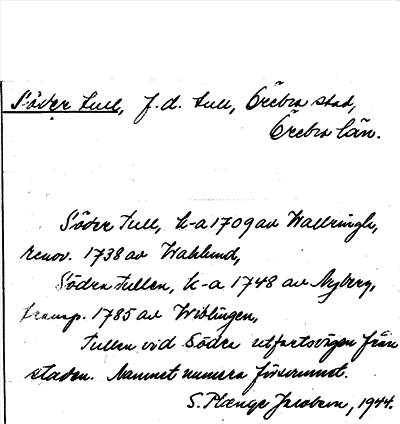 Söder tull, f.d. tull, Örebro stad,
Örebro län.
Söder tull, k-a 1709 av Wallringh,
renov. 1738 av Wahlund,
Södra tullen, k-a 1748 av Nyberg,
transp. 1785 av Wiblingen,
Tullen vid Södra utfartsvägen från
staden. Namnet numera försvunnet.
S. Plænge Jacobson, 1944.